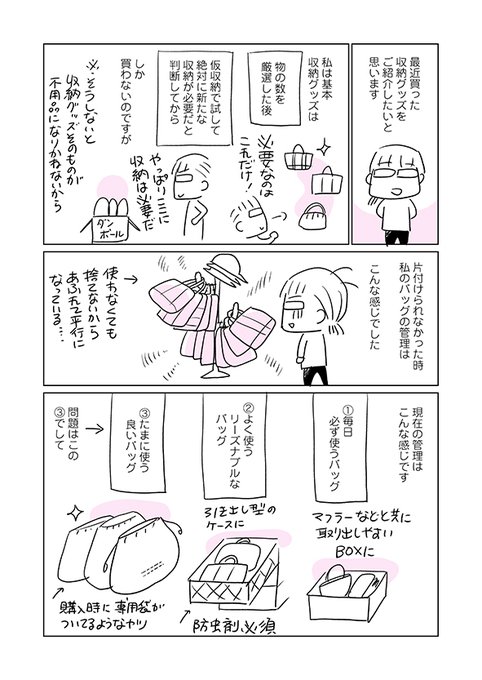 最近買った
収納グッズを
ご紹介したいと
思います
私は基本
収納グッズは
物の数を
厳選した後
必要なのは
これだけ!
仮収納で試して
絶対に新たな
収納が必要だと
判断してから
やっぱりここに
収納は必要だ
しか
買わないのですが
ダン
ボール
※そうしないと
収納グッズそのものが
不用品になりかねないから
片付けられなかった時
私のバッグの管理は
こんな感じでした
使わなくても
捨てないから
あふれて平行に
なっている…
現在の管理は
こんな感じです
①毎日
必ず使うバッグ
マフラーなどと共に
取り出しやすい
BOXに
②よく使う
リーズナブルな
バッグ
引き出し型の
ケースに
防虫剤必須
③たまに使う
良いバッグ
購入時に専用袋が
ついてるようなヤツ
問題はこの
③でして